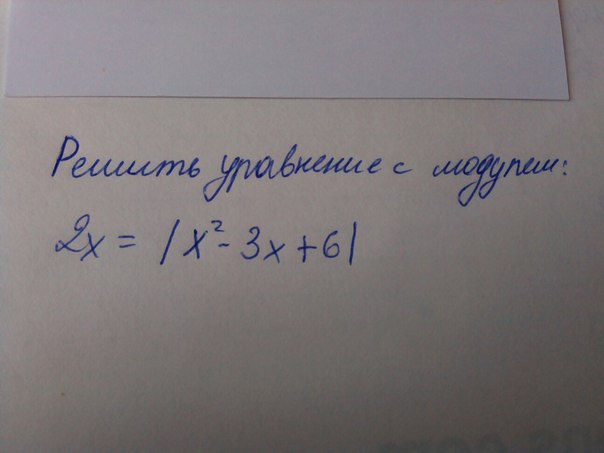 Решить уравнение с модулем:
2x = |x² - 3x + 6|